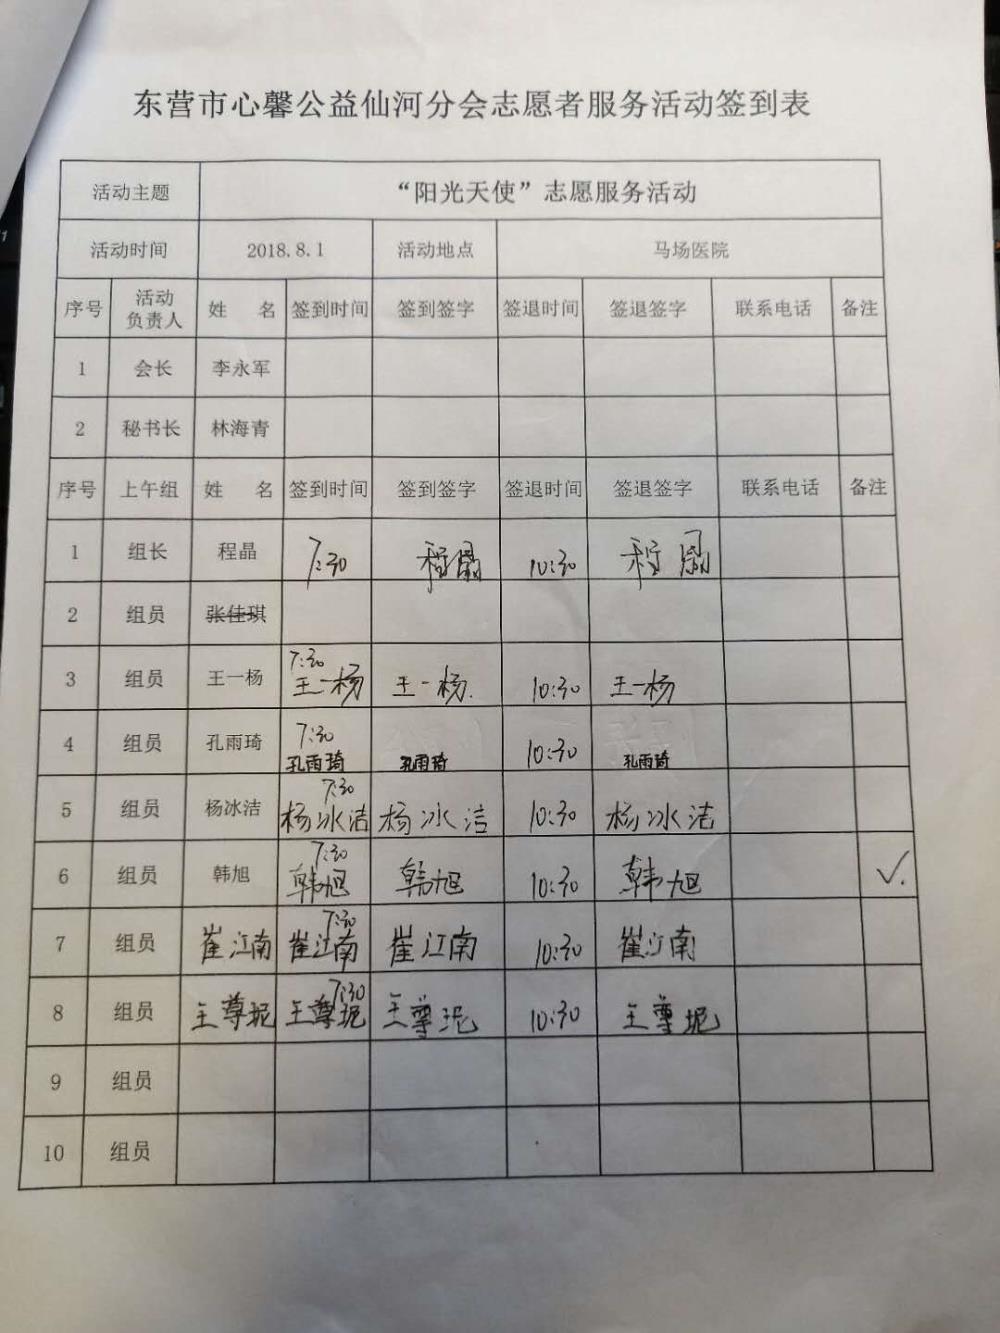 东营市心馨公益仙河分会志愿者服务活动签到表
活动主题 “阳光天使”志愿服务活动
活动时间 2018.8.1 活动地点 马场医院
序号 活动负责人 姓 名 签到时间 签到签字 签退时间 签退签字 联系电话 备注
1 会长 李永军
2 秘书长 林海青
序号 上午组 姓 名 签到时间 签到签字 签退时间 签退签字 联系电话 备注
1 组长 程晶 7:30 程晶 10:30 程晶
2 组员 张佳琪
3 组员 王一杨 7:30 王一杨 王一杨. 10:30 王一杨
4 组员 孔雨琦 7:30 孔雨琦 孔雨琦 10:30 孔雨琦
5 组员 杨冰洁 7:30 杨冰洁 杨冰洁 10:30 杨冰洁
6 组员 韩旭 7:30 韩旭 韩旭 10:30 韩旭 ✓.
7 组员 崔江南 7:30 崔江南 崔江南 10:30 崔江南
8 组员 王尊妮 7:30 王尊妮 王尊妮 10:30 王尊妮
9 组员
10 组员